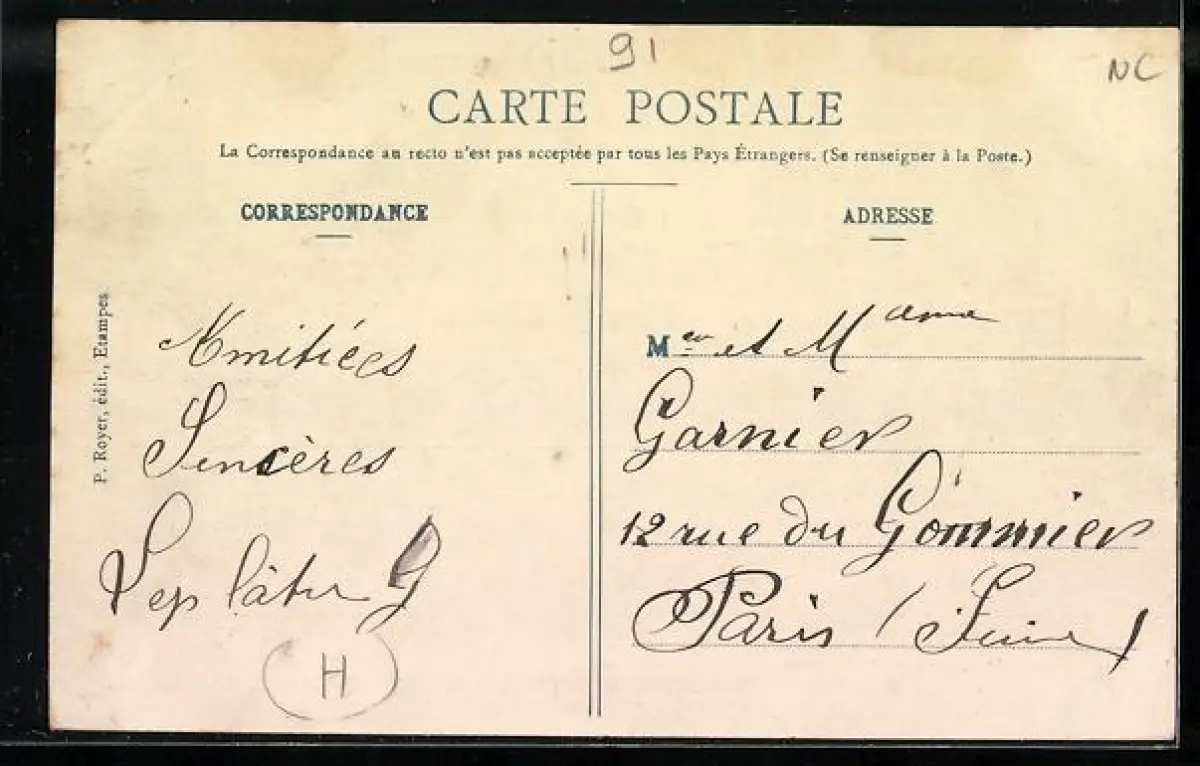 91
NC
CARTE POSTALE
La Correspondance au recto n'est pas acceptée par tous les Pays Étrangers. (Se renseigner à la Poste.)
CORRESPONDANCE
P. Royer, édit., Etampes
Amitiées
Sincères
Leplâtre G
H
ADRESSE
M et Mame
Garnier
12 rue du Gommier
Paris (Seine)